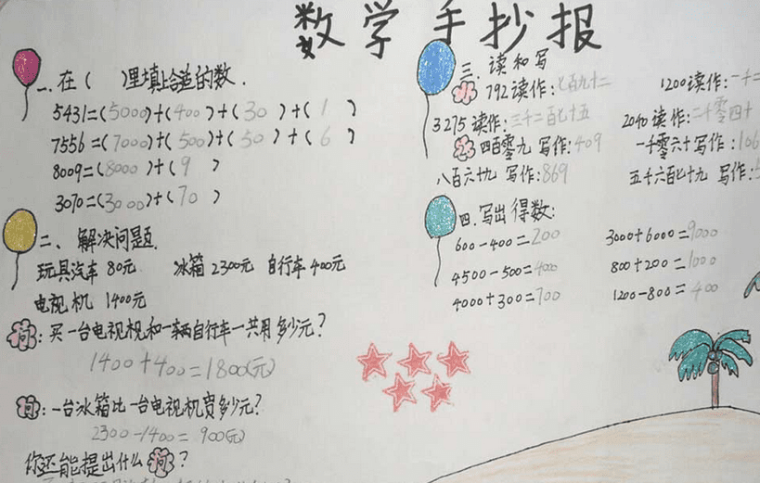 数学手抄报
一、在( )里填上合适的数.
5431=(5000)+(400)+(30)+(1)
7556=(7000)+(500)+(50)+(6)
8009=(8000)+(9)
3070=(3000)+(70)
二、解决问题.
玩具汽车 80元 冰箱 2300元 自行车 400元
电视机 1400元
问:买一台电视机和一辆自行车一共用多少元?
1400+400=1800(元)
问:一台冰箱比一台电视机贵多少元?
2300-1400=900(元)
你还能提出什么问?
三.读和写
1 792读作:七百九十二 1200读作:一千二
3275读作:三千二百七十五 2040读作:二千零四十
2 四百零九 写作:409 一千零六十写作:106
八百六十九 写作:869 五千六百七十九 写作:5
四.写出得数:
600-400=200 3000+6000=9000
4500-500=4000 800+200=1000
4000+300=700 1200-800=400